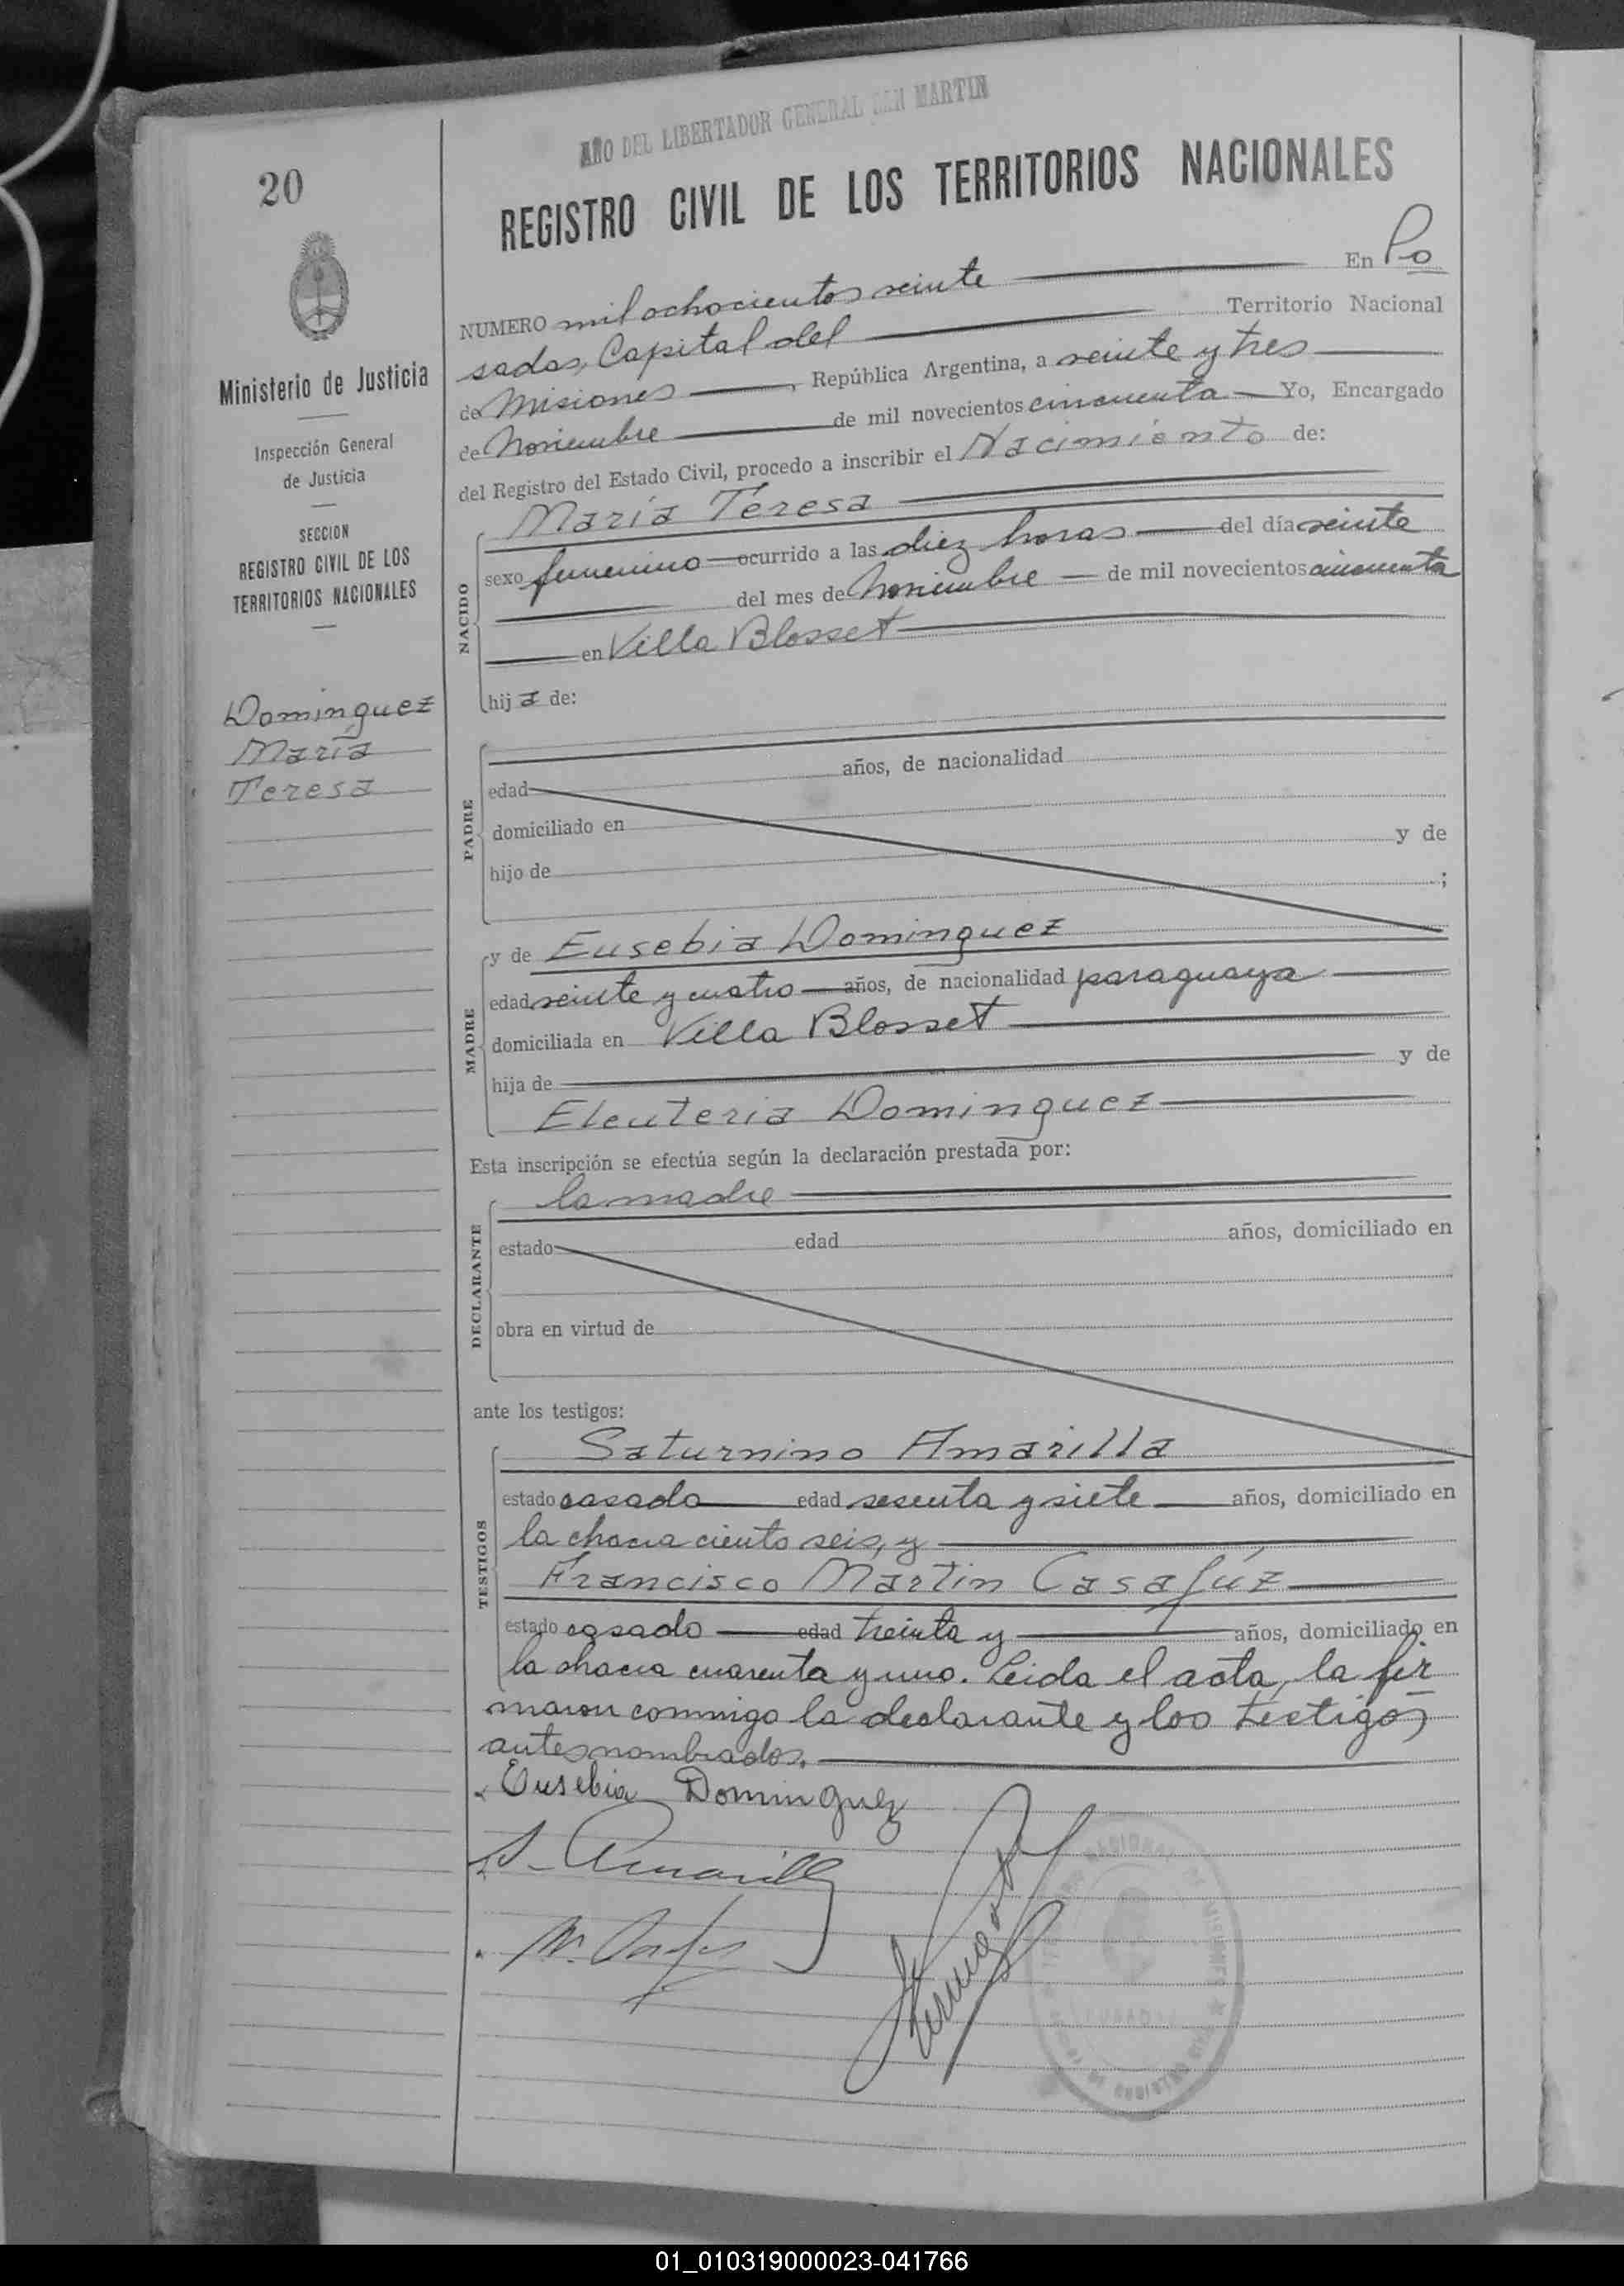 AÑO DEL LIBERTADOR GENERAL SAN MARTIN
20
REGISTRO CIVIL DE LOS TERRITORIOS NACIONALES
Ministerio de Justicia
Inspección General
de Justicia
SECCION
REGISTRO CIVIL DE LOS
TERRITORIOS NACIONALES
Dominguez
María
Teresa
NUMERO mil ochocientos veinte En Po
sadas, Capital del Territorio Nacional
de Misiones, República Argentina, a veinte y tres
de Noviembre de mil novecientos cincuenta Yo, Encargado
del Registro del Estado Civil, procedo a inscribir el Nacimiento de:
NACIDO
María Teresa
sexo femenino ocurrido a las diez horas del día veinte
del mes de Noviembre de mil novecientos cincuenta
en Villa Blosset
hija de:
PADRE
edad años, de nacionalidad
domiciliado en
hijo de y de
;
MADRE
y de Eusebia Dominguez
edad veinte y cuatro años, de nacionalidad paraguaya
domiciliada en Villa Blosset
hija de y de
Eleuteria Dominguez
Esta inscripción se efectúa según la declaración prestada por:
DECLARANTE
la madre
estado edad años, domiciliado en
obra en virtud de
ante los testigos:
TESTIGOS
Saturnino Amarilla
estado casado edad sesenta y siete años, domiciliado en
la chacra ciento seis, y
Francisco Martin Casafúz
estado casado edad treinta y años, domiciliado en
la chacra cuarenta y uno. Leida el acta, la fir
maron conmigo la declarante y los testigos
antes nombrados.
Eusebia Dominguez
S. Amarilla
01_010319000023-041766